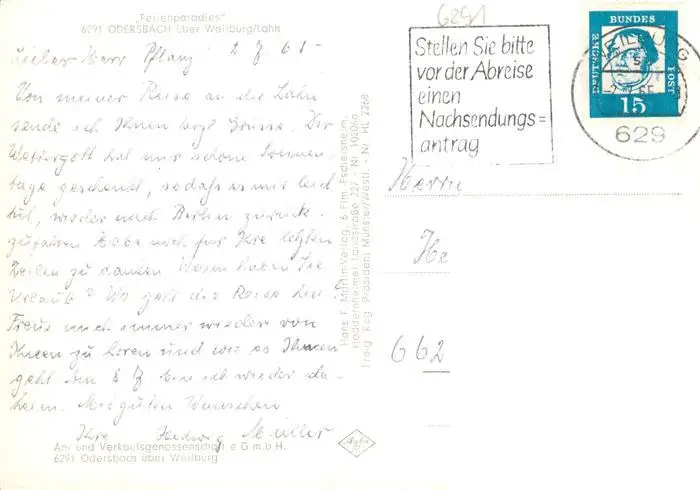 „Ferienparadies"
6291 ODERSBACH über Weilburg/Lahn
Lieber Herr Pflanz! 2 7 65 -
Von meiner Reise an die Lahn
sende ich Ihnen herzl Grüsse. Der
Wettergott hat mir schöne Sonnen-
tage geschenkt, sodaß es mir leid
tut, wieder nach Berlin zurück-
zufahren Habe noch für Ihre letzten
Zeilen zu danken Wann haben Sie
Urlaub? Wo geht die Reise hin?
Freue mich immer wieder von
Ihnen zu hören und wie es Ihnen
geht Am 8 7 bin ich wieder da-
heim. Mit guten Wünschen
Ihre Hedwig Müller
An- und Verkaufsgenossenschaft e G m b H
6291 Odersbach über Weilburg
Hans F. Martin-Verlag, 6 Ffm.-Eschersheim,
Haddernheimer Landstraße 227 - Nr. 10206a
Freig. Reg. Präsident Münster/Westf. - Nr. HL 2268
6291
Stellen Sie bitte
vor der Abreise
einen
Nachsendungs=
antrag
WEILBURG
629
DEUTSCHE
BUNDES
POST
15
Herrn
He
662